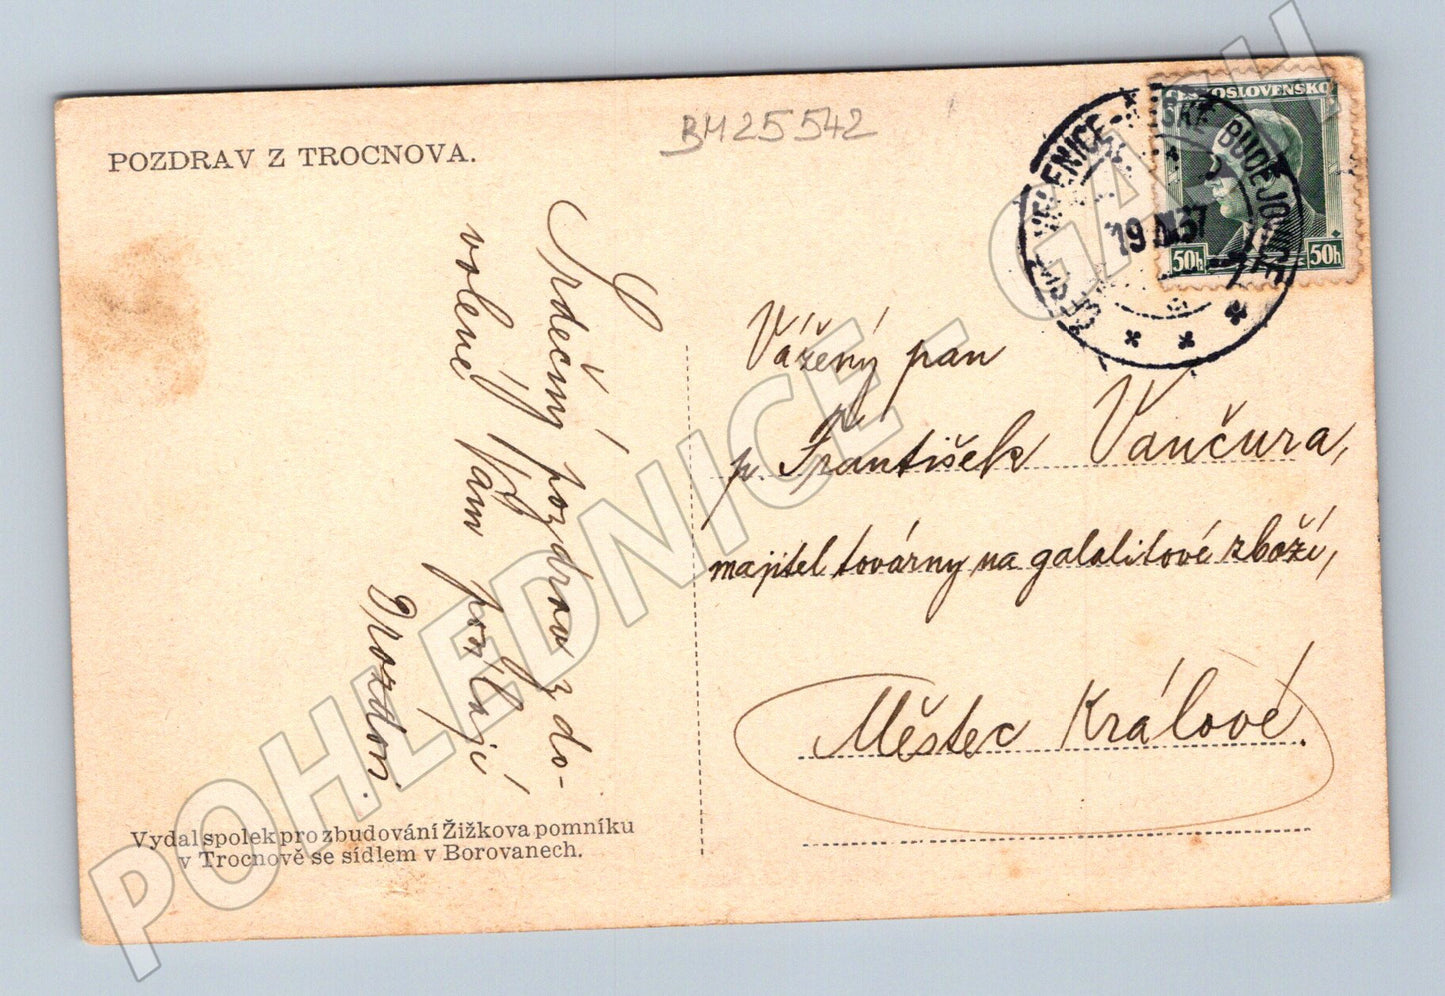 POZDRAV Z TROCNOVA.
BM25542
ČESKOSLOVENSKO
50h 50h
ČESKÉ VELENICE - ČESKÉ BUDĚJOVICE
19 37
Srdečný pozdrav z do-
volené Vám posílají
Drozdovi.
Vážený pan
p. František Vančura,
majitel továrny na galalitové zboží,
Městec Králové.
Vydal spolek pro zbudování Žižkova pomníku
v Trocnově se sídlem v Borovanech.
POHLEDNICE -